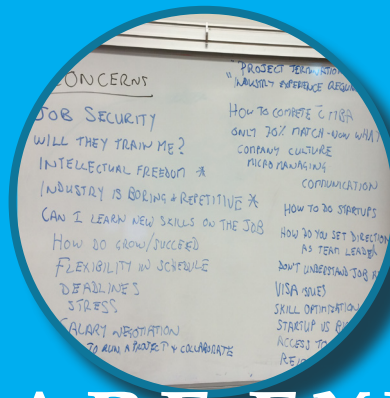 CONCERNS
JOB SECURITY
WILL THEY TRAIN ME?
INTELLECTUAL FREEDOM *
INDUSTRY IS BORING & REPETITIVE *
CAN I LEARN NEW SKILLS ON THE JOB
HOW DO GROW/SUCCEED
FLEXIBILITY IN SCHEDULE
DEADLINES
STRESS
SALARY NEGOTIATION
TO RUN A PROJECT & COLLABORATE
"PROJECT
"INDUSTRY EXPERIENCE
HOW TO COMPETE C MBA
ONLY 70% MATCH - NOW WHAT
COMPANY CULTURE
MICROMANAGING
COMMUNICATION
HOW TO DO STARTUPS
HOW DO YOU SET DIRECTION
AS TEAM LEADER
DON'T UNDERSTAND JOB
VISA ISSUES
SKILL OPTIMIZATION
STARTUP VS
ACCESS TO